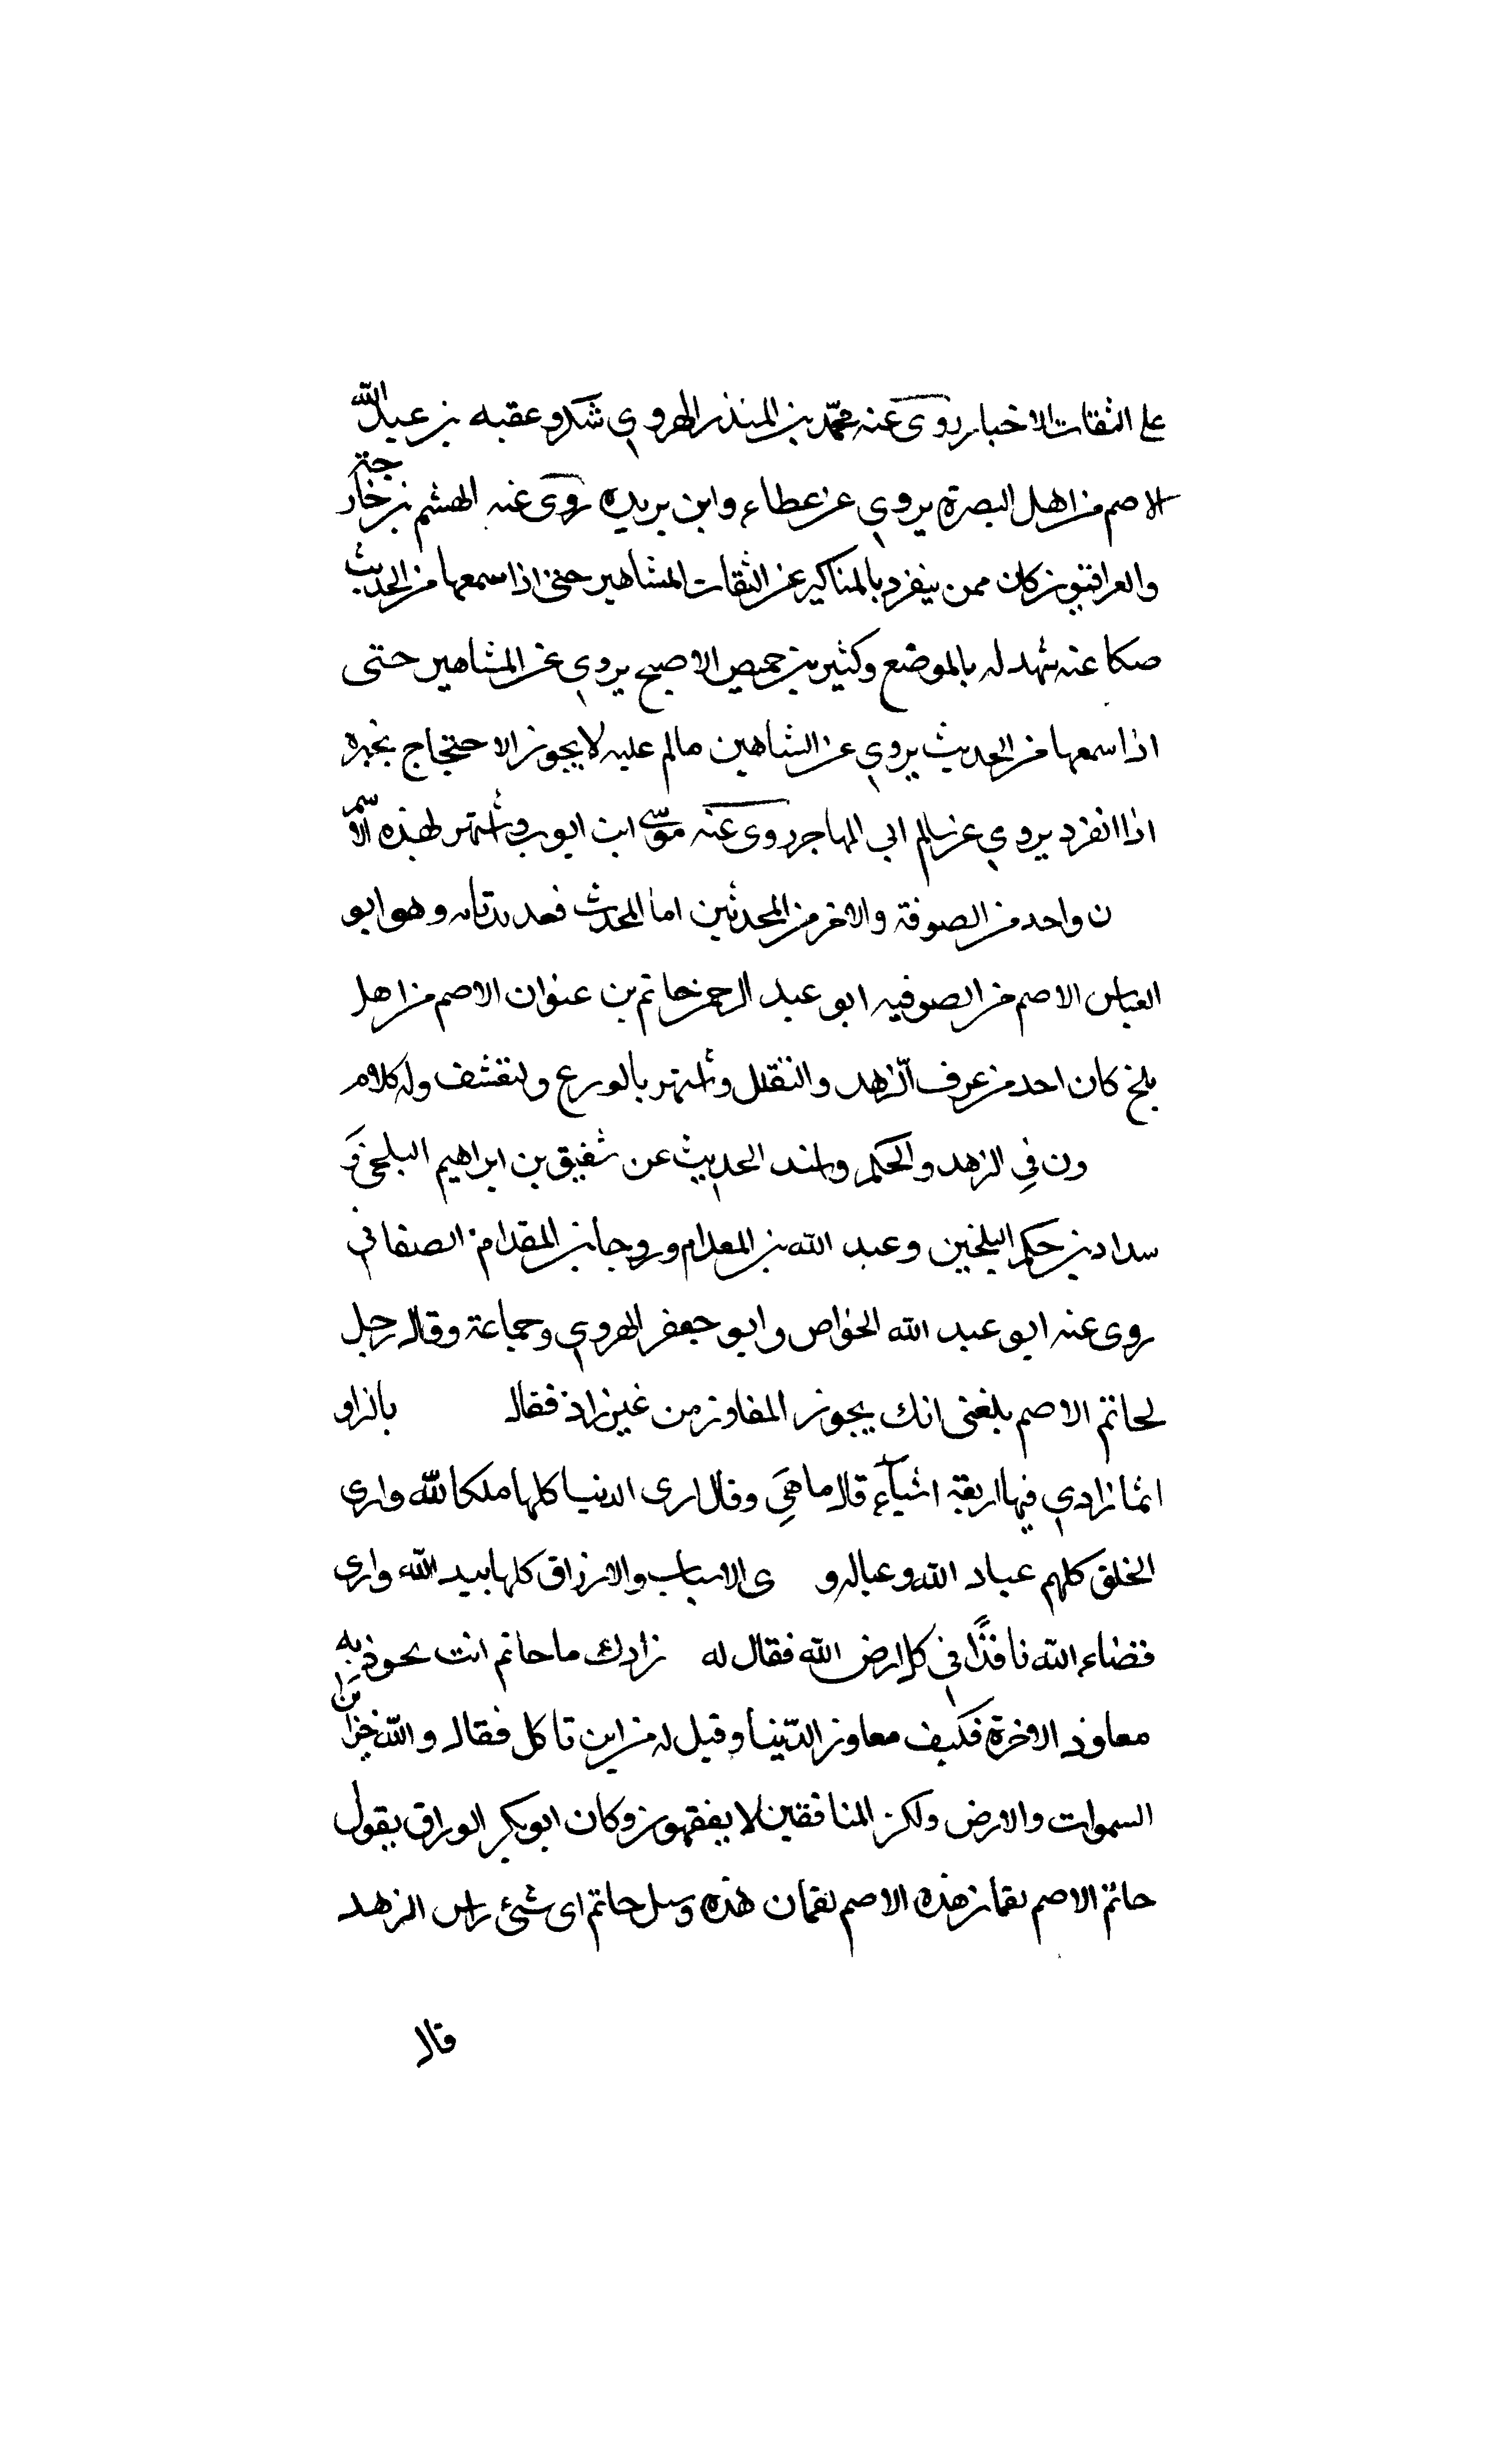 على الثقات الاخبار روى عنه محمد بن المنذر الهروي شكر وعقبه بن عبد الله
الاصم من اهل البصرة يروي عن عطاء وابن بريده روى عنه الهشم بن خارجة
والعراقيون كان ممن ينفرد بالمناكير عن الثقات المشاهير حتى اذا سمعها من الحديث
صكا عنه شهد له بالموضع وكثير بن حميص الاصبح يروي عن المشاهير حتى
اذا سمعها من الحديث يروي عن الشاهين مالم عليه لا يجوز الاحتجاج بخبره
اذا انفرد يروي عن سالم ابي المهاجر روى عنه موسى ابن ايوب وشتهر لهذه الاسم
ن واحد من الصوفة والاخر من المحدثين اما المحدث فعد وهو ابو
العباس الاصم من الصوفيه ابو عبد الرحمن حاتم بن عنوان الاصم من اهل
بلخ كان احد من عرف الزهد والتقلل وشتهر بالورع ولتقشف وله كلام
ون في الزهد والحكم واسند الحديث عن شقيق بن ابراهيم البلخي و
سداد بن حكم البلخين وعبد الله بن المعدام وروحا بن المقدام الصفاني
روى عنه ابو عبد الله الخواص وابو جعفر الهروي وجماعة وقال رجل
لحاتم الاصم بلغنى انك يجوز المفاوز من غير زاد فقال بالزاو
انما زادي فيها اربعة اشياء قال ما هي وقال ارى الدنيا كلها ملكا لله وارى
الخلق كلهم عباد الله وعياله و ى الاسباب والارزاق كلها بيد الله وارى
قضاء الله نافذا في كل ارض الله فقال له زادك ما حاتم انت بحوذ به
معاوذ الاخرة فكيف معاوز الدنيا وقيل له من اين تاكل فقال والله خزائن
السموات والارض ولكن المنافقين لا يفقهون وكان ابو بكر الوراق يقول
حاتم الاصم لقمان هذه الاصم لقمان هذه وسل حاتم اى شئ راس الزهد
قال